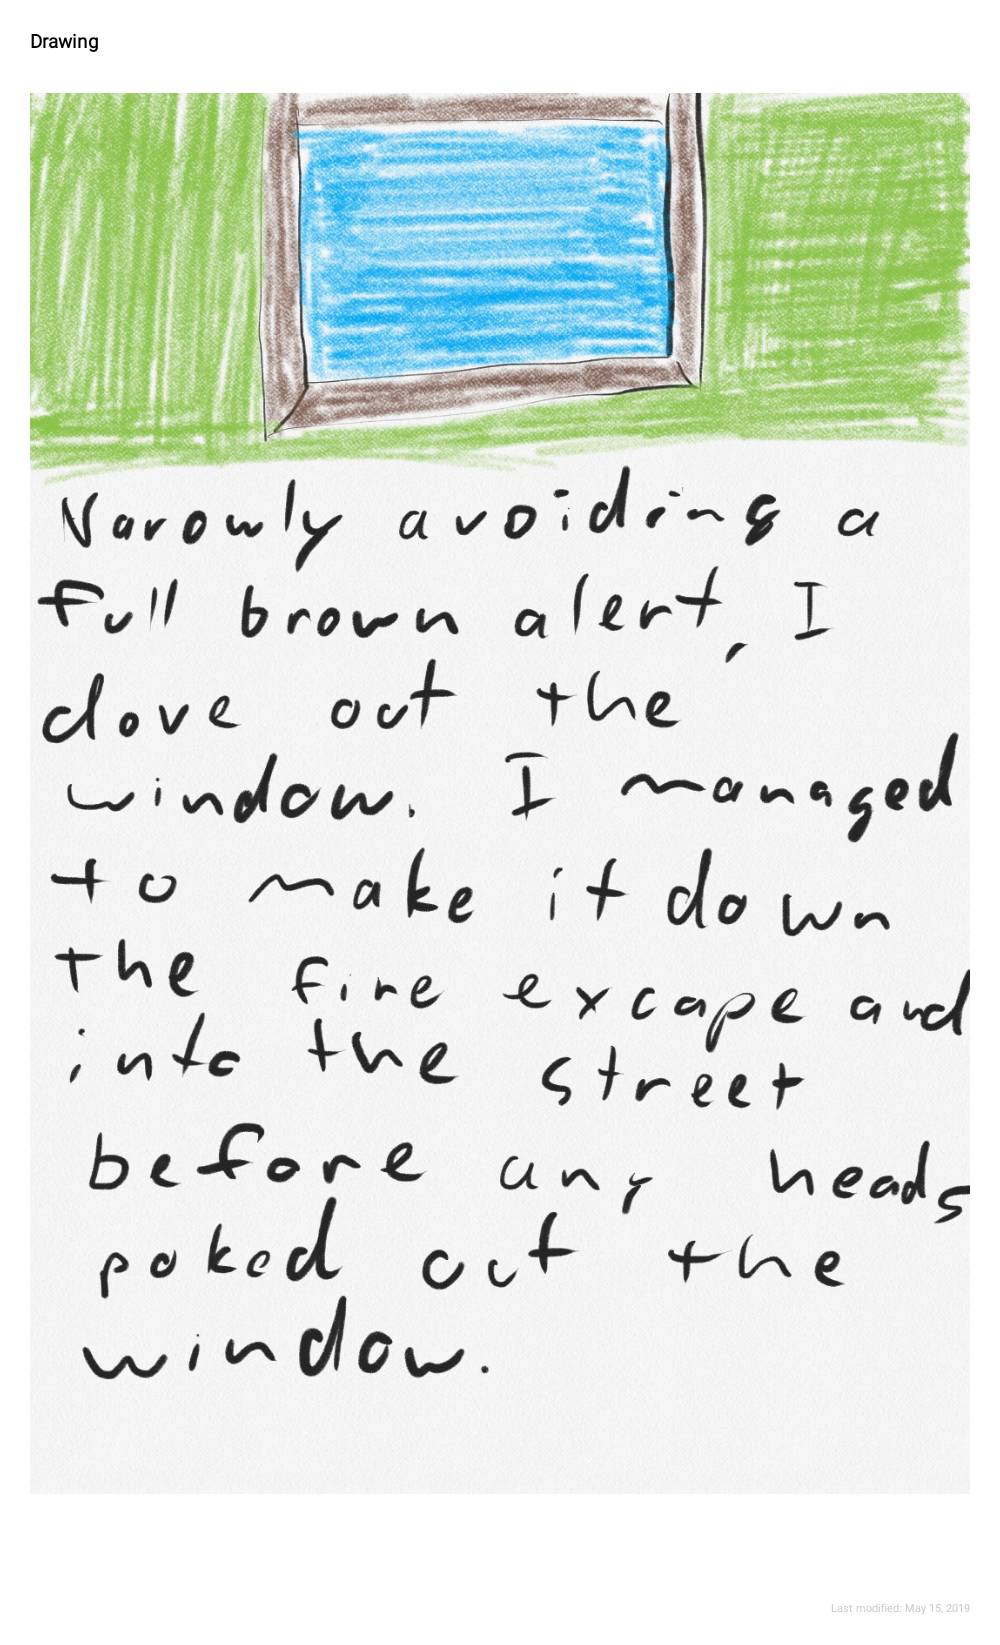 Drawing
Narowly avoiding a
full brown alert, I
dove out the
window. I managed
to make it down
the fire excape and
into the street
before any heads
poked out the
window.
Last modified: May 15, 2019